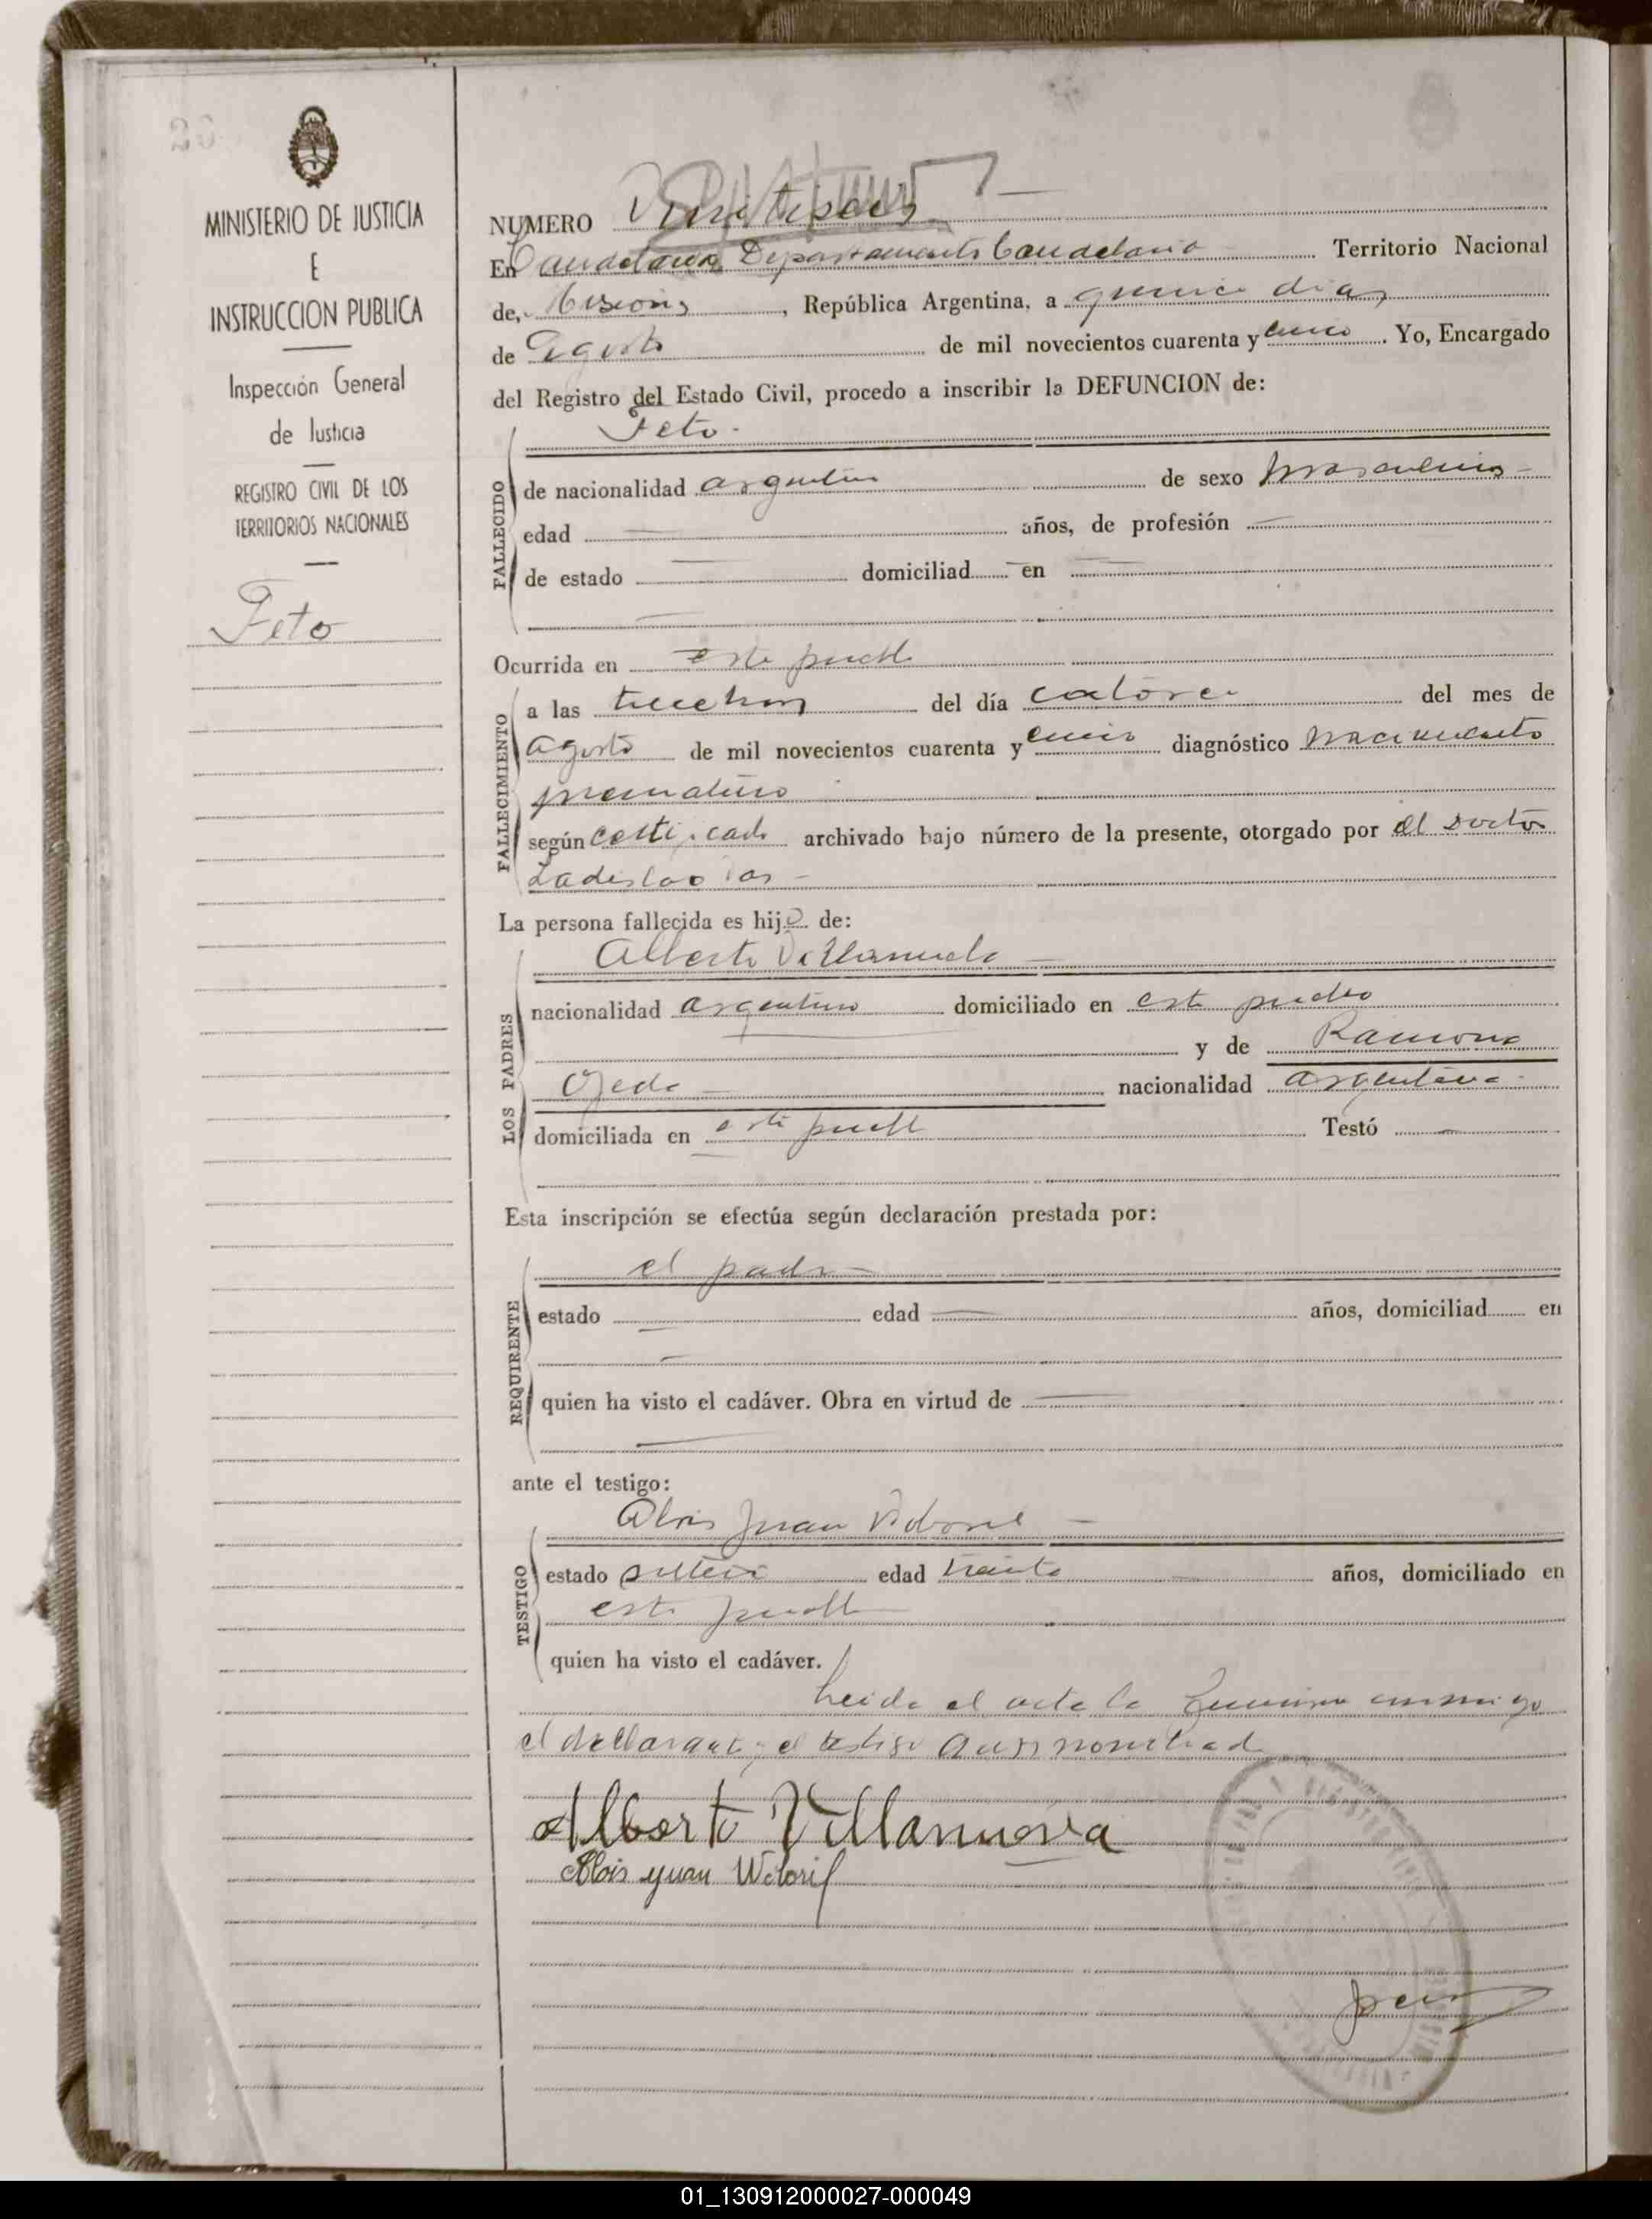 MINISTERIO DE JUSTICIA
E
INSTRUCCION PUBLICA
Inspección General
de Justicia
REGISTRO CIVIL DE LOS
TERRITORIOS NACIONALES
Feto
NUMERO
En Candelaria Departamento Candelaria Territorio Nacional
de Misiones, República Argentina, a quince dias
de Agosto de mil novecientos cuarenta y cinco. Yo, Encargado
del Registro del Estado Civil, procedo a inscribir la DEFUNCION de:
Feto
FALLECIDO
de nacionalidad argentino de sexo masculino
edad años, de profesión
de estado domiciliad en
Ocurrida en este pueblo
FALLECIMIENTO
a las trece horas del día catorce del mes de
agosto de mil novecientos cuarenta y cinco diagnóstico nacimiento
prematuro
según certificado archivado bajo número de la presente, otorgado por el Doctor
Ladislao
La persona fallecida es hijo de:
LOS PADRES
Alberto Villanueva
nacionalidad argentino domiciliado en este pueblo
y de Ramona
Ojeda nacionalidad argentina
domiciliada en este pueblo Testó
Esta inscripción se efectúa según declaración prestada por:
REQUIRENTE
el padre
estado edad años, domiciliad en
quien ha visto el cadáver. Obra en virtud de
ante el testigo:
TESTIGO
Alois Juan
estado soltero edad treinta años, domiciliado en
este pueblo
quien ha visto el cadáver.
Leida el acta la firman conmigo
el declarante y el testigo
Alberto Villanueva
Alois Juan
01_130912000027-000049